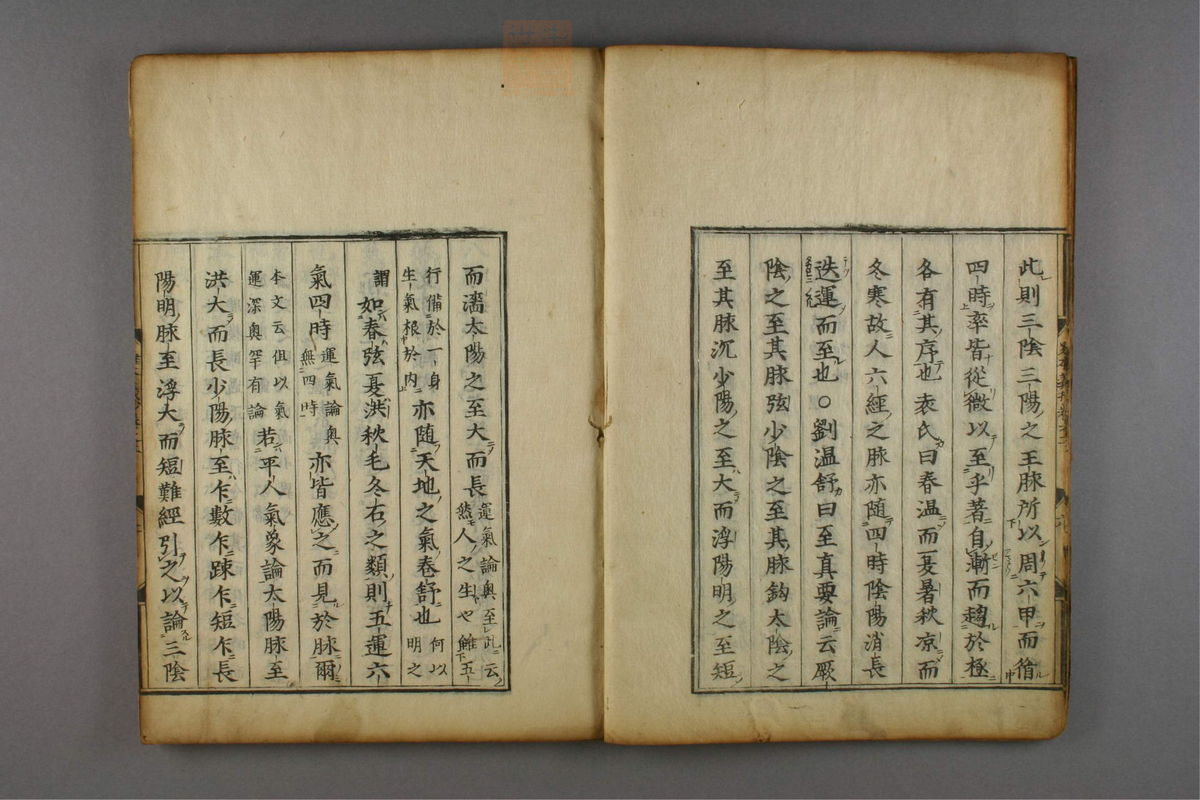 此則三陰三陽之王脉所以周六甲而循
四時率皆從微以至乎著自漸而趨於極
各有其序也袁氏曰春温而夏暑秋凉而
冬寒故人六經之脉亦随四時陰陽消長
迭運而至也○劉温舒曰至真要論云厥
陰之至其脉弦少陰之至其脉鈎太陰之
至其脉沉少陽之至大而浮陽明之至短
而濇太陽之至大而長運氣論奥至此云然人之生也雖五
行備於一身生氣根於内亦随天地之氣卷舒也何以明之
謂如春弦夏洪秋毛冬石之類則五運六
氣四時運氣論奥無四時亦皆應之而見於脉爾
本文云但以氣運深奥罕有論若平人氣象論太陽脉至
洪大而長少陽脉至乍數乍踈乍短乍長
陽明脉至浮大而短難經引之以論三陰